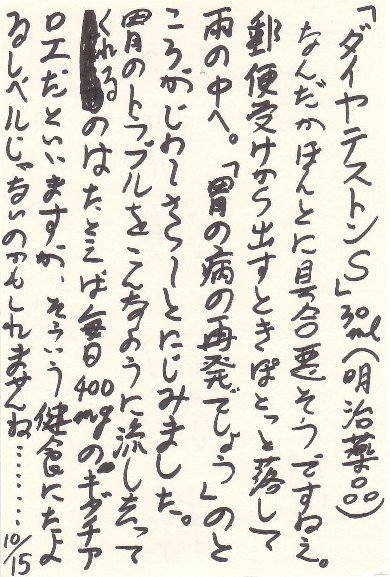 「ダイヤテストンS」30ml(明治薬品)
なんだかほんとに具合悪そうですねえ。
郵便受けから出すときぽとっと落して
雨の中へ。「胃の病の再発でしょう」のと
ころがじわーさらーとにじみました。
胃のトラブルをこんなように流し去って
くれるのはたとえば毎日400mgのキダチア
ロエだといいますが、そういう健食にたよ
るレベルじゃないのかもしれませんね………
10/15